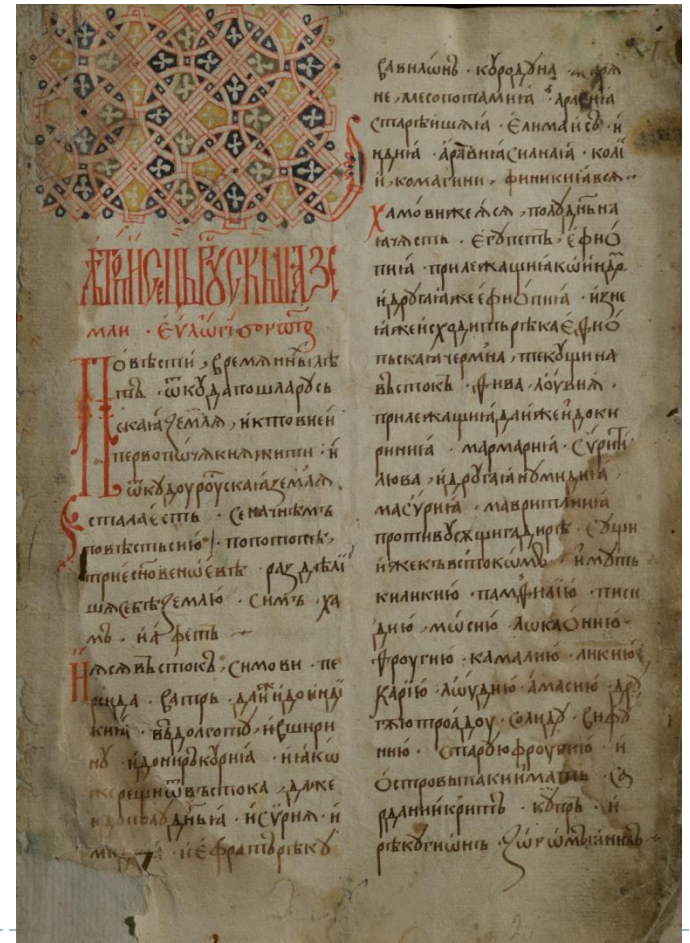 млн · єѵлѡгі ѻ҆ч҃ѡтѡ
Повѣсти, времянны лѣ
тъ · ѿкуда пошла русь
скаꙗ земля, и кто в ней
первоє поча княжити · и
ѿкудоу роускаꙗ земля
стала єсть · Се начнемъ
повѣсть сию · по потопѣ,
триє снове ноєвѣ · раздѣлі
шя себѣ землю · Симъ · ха
мъ · и афетъ
Ꙗся въстокъ, Симови · пе
рсида · ватрь · даже и до инді
киꙗ · въ долготу, и въ шири
ну · и до нирокурия · и ꙗкѡ
же рещи ѿ въстока · даже
и до полуднья · и сурия · и
ми · и єфратъ рѣку
вавилѡнъ · кордуна
не, месопотамиꙗ · аравиꙗ
старѣишаꙗ · єлимаисъ · и
ндиꙗ · аравиꙗ силнаꙗ · колі
и, комагини · финикиꙗ вся
хамови же яся, полудньна
ꙗ часть · єгупетъ, єфиѻ
пиꙗ · прилежащиꙗ къ индѡ
и другаꙗ же єфиѻпиꙗ · из не
ꙗ же исходить рѣка єфиѻ
пьскаꙗ чермна, текущи на
въстокъ · фива · лоувия ·
прилежащи даже и до ки
риниꙗ · мармариꙗ · Сурит
люва, и другаꙗ нумидиꙗ ·
масуриꙗ · мавританиꙗ
противу сущи гадирѣ · Сущи
и же къ въстокомъ · имуть
киликию · памфилїю · писи
дию, мѡсию · лѡкаѻнию ·
фроугию · камалию · ликию
карїю · лѡудию · амасию · дру
гую троадоу · Солиду · вифу
нию · Старую фроугию · и
ѻстровы паки имать · Са
рдани и критъ · купръ · и
рѣку гиѡнъ · зовомыи нилъ